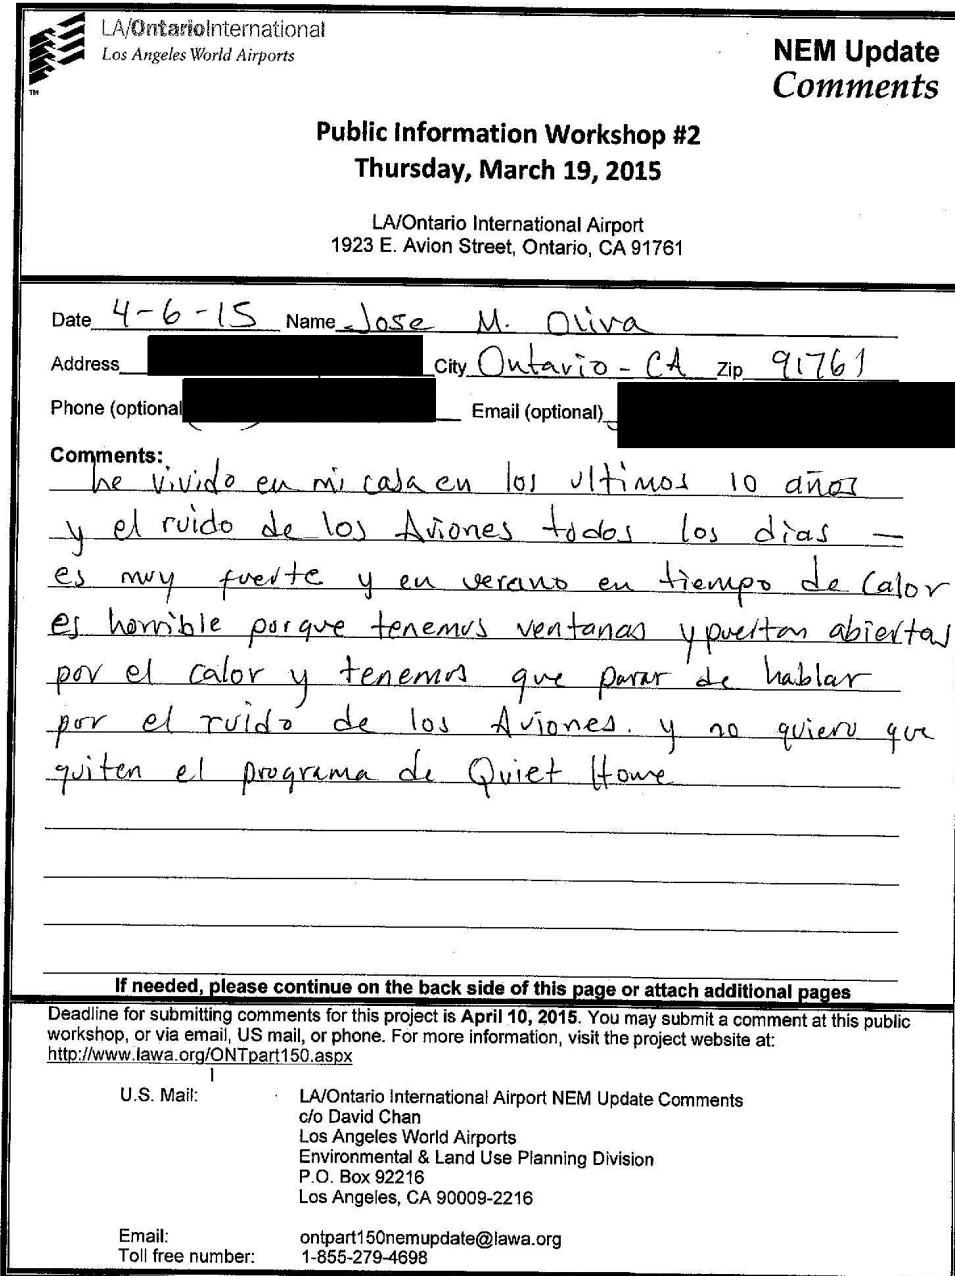 LA/OntarioInternational
Los Angeles World Airports
TM
NEM Update
Comments
Public Information Workshop #2
Thursday, March 19, 2015
LA/Ontario International Airport
1923 E. Avion Street, Ontario, CA 91761
Date 4-6-15 Name Jose M. Oliva
Address City Ontario - CA Zip 91761
Phone (optional Email (optional)
Comments:
he vivido en mi casa en los ultimos 10 años
y el ruido de los Aviones todos los dias —
es muy fuerte y en verano en tiempo de Calor
es horrible porque tenemos ventanas y puertan abiertas
por el calor y tenemos que parar de hablar
por el ruido de los Aviones. y no quiero que
quiten el programa de Quiet Home
If needed, please continue on the back side of this page or attach additional pages
Deadline for submitting comments for this project is April 10, 2015. You may submit a comment at this public
workshop, or via email, US mail, or phone. For more information, visit the project website at:
http://www.lawa.org/ONTpart150.aspx
U.S. Mail: LA/Ontario International Airport NEM Update Comments
c/o David Chan
Los Angeles World Airports
Environmental & Land Use Planning Division
P.O. Box 92216
Los Angeles, CA 90009-2216
Email: ontpart150nemupdate@lawa.org
Toll free number: 1-855-279-4698